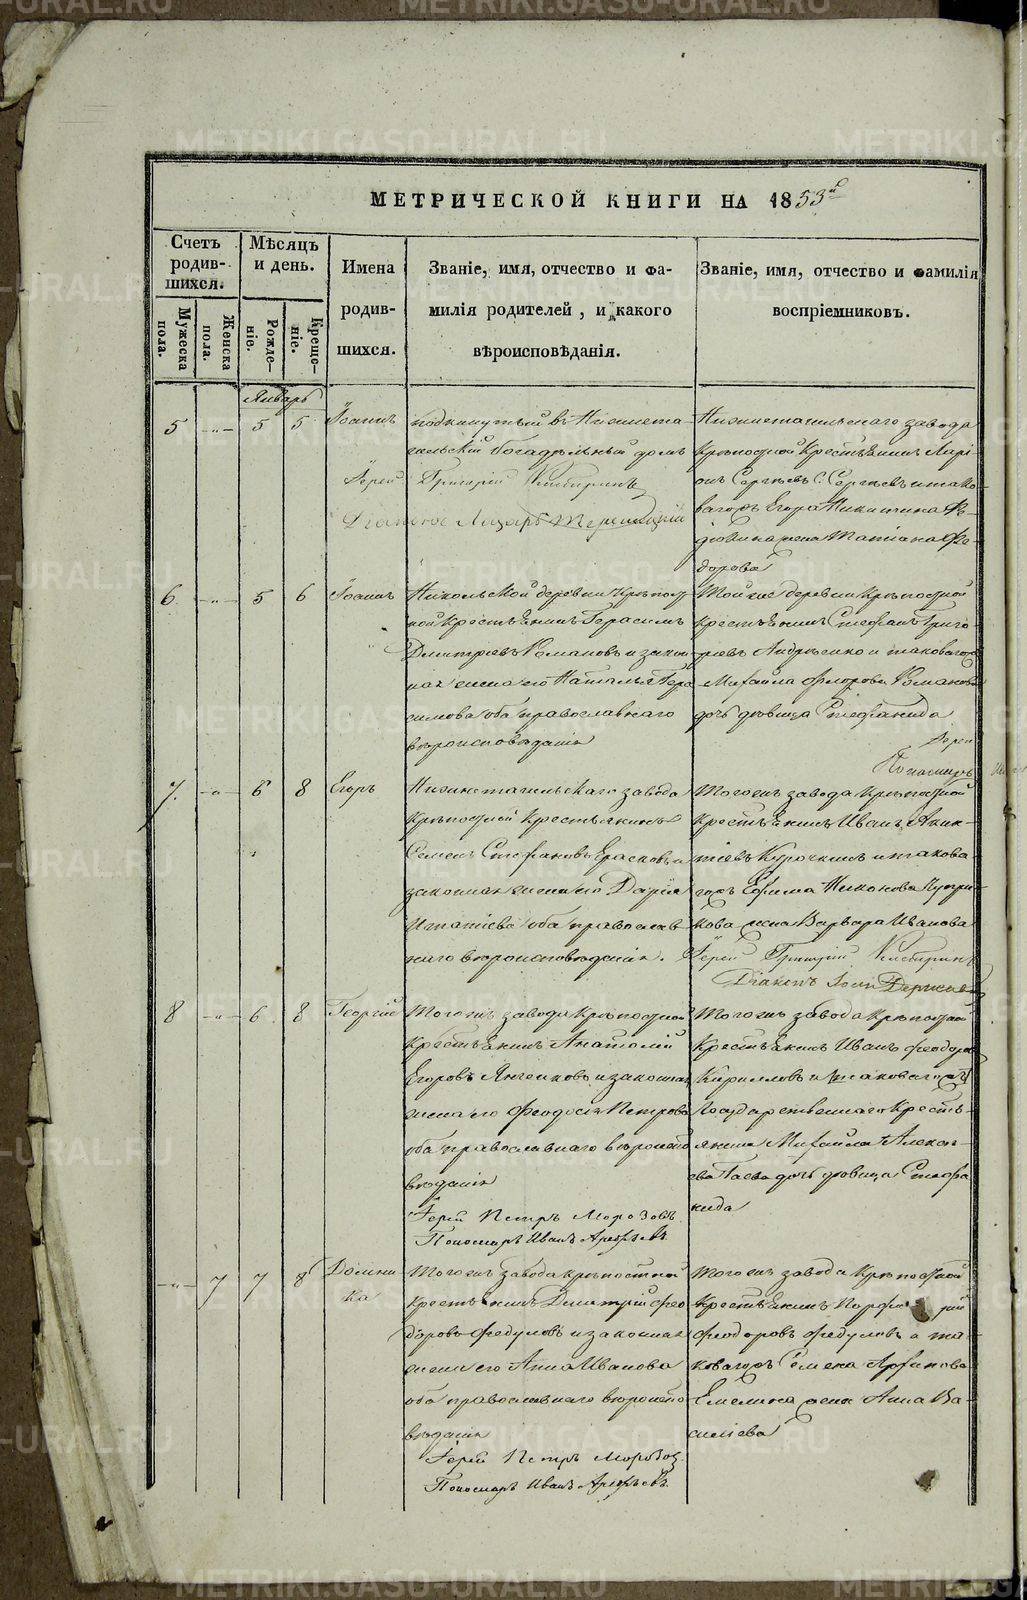 МЕТРИЧЕСКОЙ КНИГИ НА 1853й
Счетъ родив-шихся.
Мужеска пола.
Женска пола.
Мѣсяцъ и день.
Рожде-ніе.
Креще-ніе.
Имена родив-шихся.
Званіе, имя, отчество и фа-
милія родителей, и какого
вѣроисповѣданія.
Званіе, имя, отчество и фамилія
воспріемниковъ.
Январь
5 -"- 5 5 Іоаннъ
подкинутый въ Нижнета-
гильскій богадѣльный домъ
Іерей Григорій
Діаконъ Лазарь
Нижнетагильскаго завода
крѣпостной крестьянинъ Лари-
онъ Сергѣевъ Сергѣевъ и тако-
ваго жъ Егора Никитина
жена Татіана Фе-
дорова
6 -"- 5 6 Іоаннъ
Никольской деревни крѣпост
ной крестьянинъ Герасимъ
Дмитріевъ Романовъ и закон
ная жена его Наталья Гера
симова оба православнаго
вѣроисповѣданія
Той же деревни крѣпостной
крестьянинъ Стефанъ Григо-
рьевъ Андрѣенко и таковаго жъ
Михайла Флорова Романова
дочь дѣвица Стефанида
Іерей
Пономарь
7. -"- 6 8 Егоръ
Нижнетагильскаго завода
крѣпостной крестьянинъ
Семенъ Стефановъ и
законная жена его Дарія
Игнатіева оба православ
наго вѣроисповѣданія.
Того жъ завода крѣпостной
крестьянинъ Иванъ Акин-
тіевъ Курочкинъ и такова-
го жъ Ефима Никонова
кова жена Варвара Иванова
Іерей Григорій
Діаконъ Іоаннъ
8 -"- 6 8 Георгій
Того жъ завода крѣпостной
крестьянинъ Анатолій
Егоровъ и законная
жена его Феодосія Петрова
оба православнаго вѣроиспо
вѣданія
Іерей Петръ Морозовъ
Пономарь Иванъ Арефьевъ
Того жъ завода крѣпостной
крестьянинъ Иванъ Феодоровъ
Кирилловъ и таковаго жъ
Государственнаго кресть-
янина Михайла Алексѣ-
ева дочь дѣвица Стефа
нида
-"- 7 7 8 Домни
ка
Того жъ завода крѣпостной
крестьянинъ Димитрій Фео
доровъ Федуловъ и законная
жена его Анна Иванова
оба православнаго вѣроиспо
вѣданія
Іерей Петръ Морозов
Пономарь Иванъ Арефьевъ
Того жъ завода крѣпостной
крестьянинъ Порфи рій
Феодоровъ Федуловъ а та-
коваго жъ Семена
Емелина жена Анна Ва-
силіева
METRIKI.GASO-URAL.RU